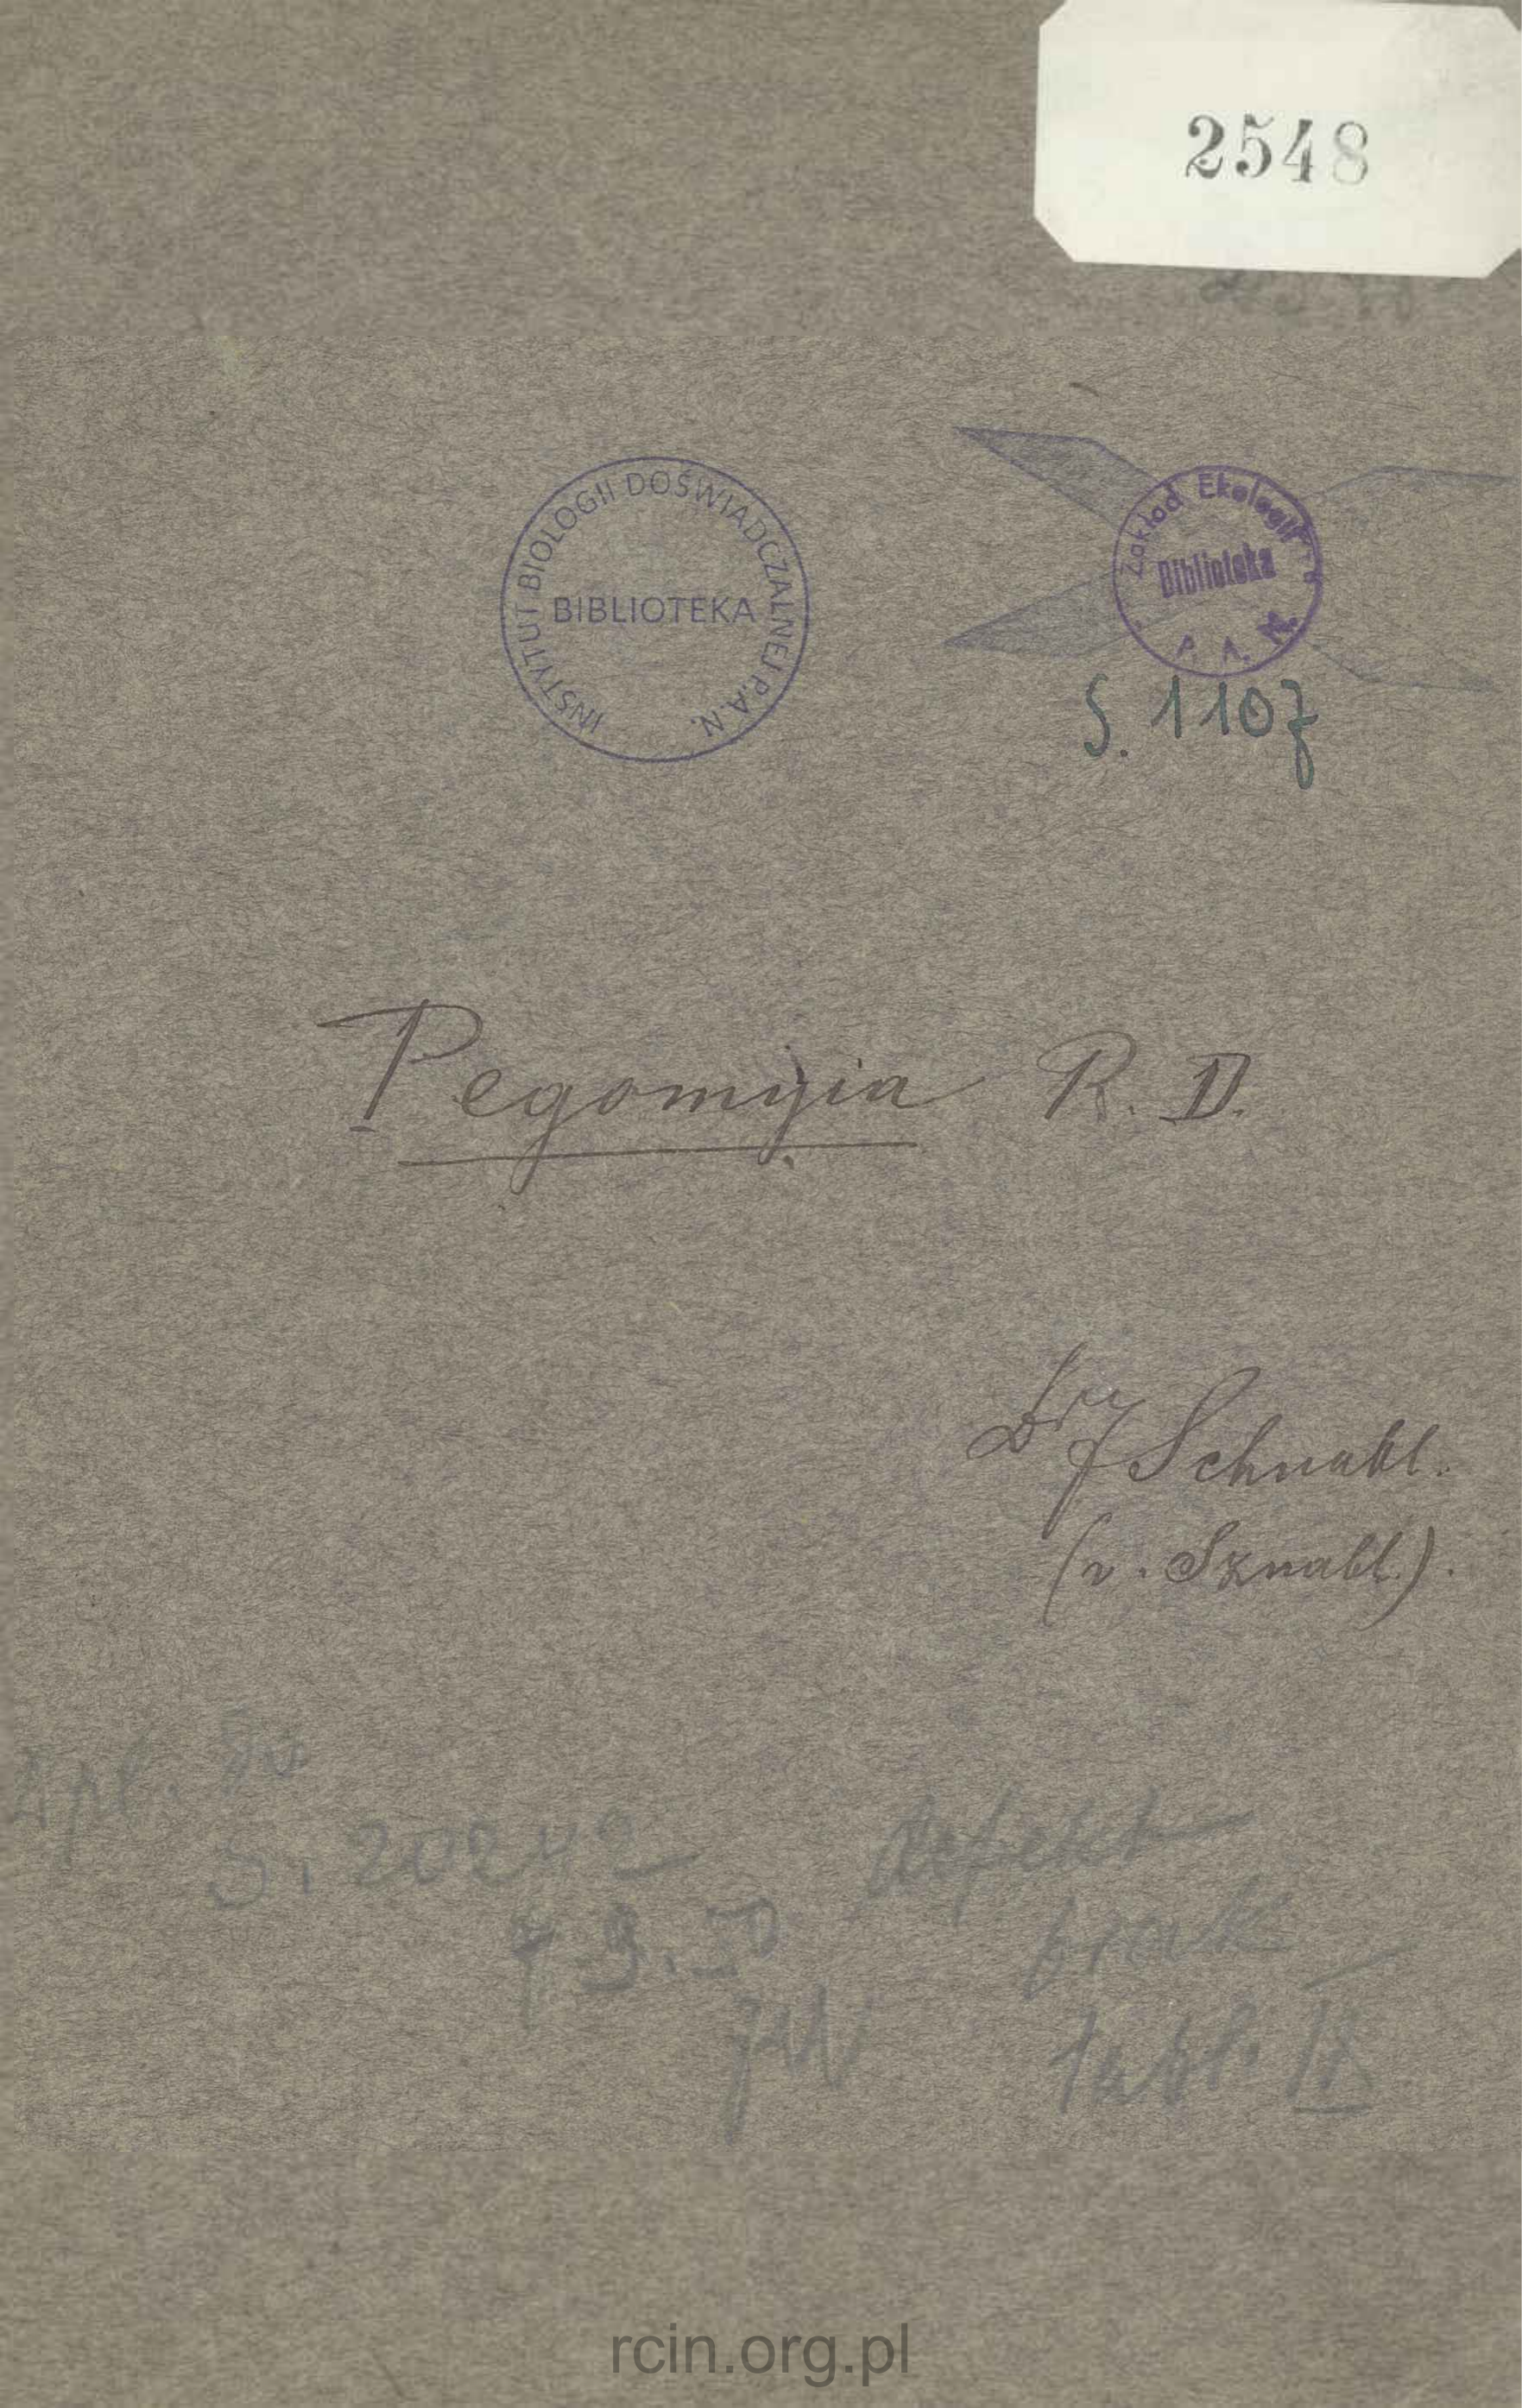 2548
INSTYTUT BIOLOGII DOŚWIADCZALNEJ P.A.N.
BIBLIOTEKA
Zakład Ekologii
Biblioteka
P. A. N.
S. 1107
Pegomyia R. D.
Dr J Schnabl.
(v. Sznabl.).
S. 20242
defekt
brak
tabl. II
rcin.org.pl